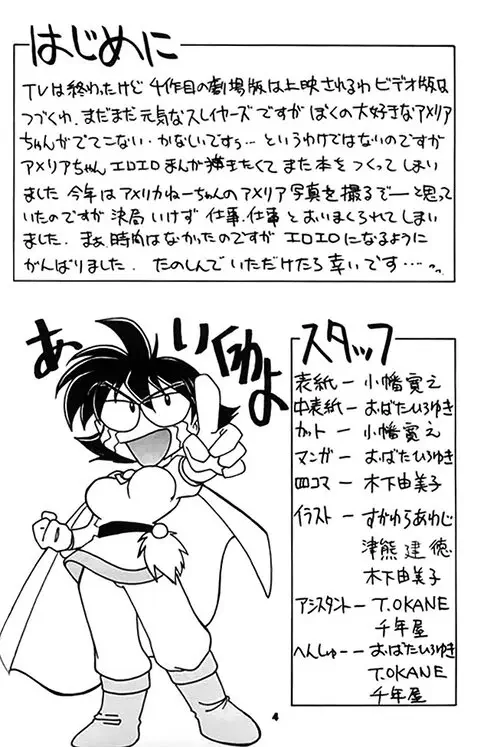 はじめに
TVは終わったけど 4作目の劇場版は上映されるわ ビデオ版は
つづくわ、まだまだ元気なスレイヤーズですが ぼくの大好きなアメリア
ちゃんがでてこない・かなしいですぅ… というわけではないのですが
アメリアちゃん エロエロ まんが 描きたくて また本を つくって しまい
ました 今年は アメリカねーちゃんの アメリア 写真を 撮るぞーと思って
いたのですが 決局 いけず 仕事、仕事 と おいまくられて しまい
ました. まぁ、時間はなかったのですが エロエロに なるように
がんばりました. たのしんで いただけたら 幸いです…
あ いくわよ
スタッフ
表紙ー 小幡寛之
中表紙ー おばたひろゆき
カットー 小幡寛之
マンガー おばたひろゆき
四コマー 木下由美子
イラストー すがわらあわじ
津熊建徳
木下由美子
アシスタントー T.OKANE
千年屋
へんしゅーー おばたひろゆき
T.OKANE
千年屋
4